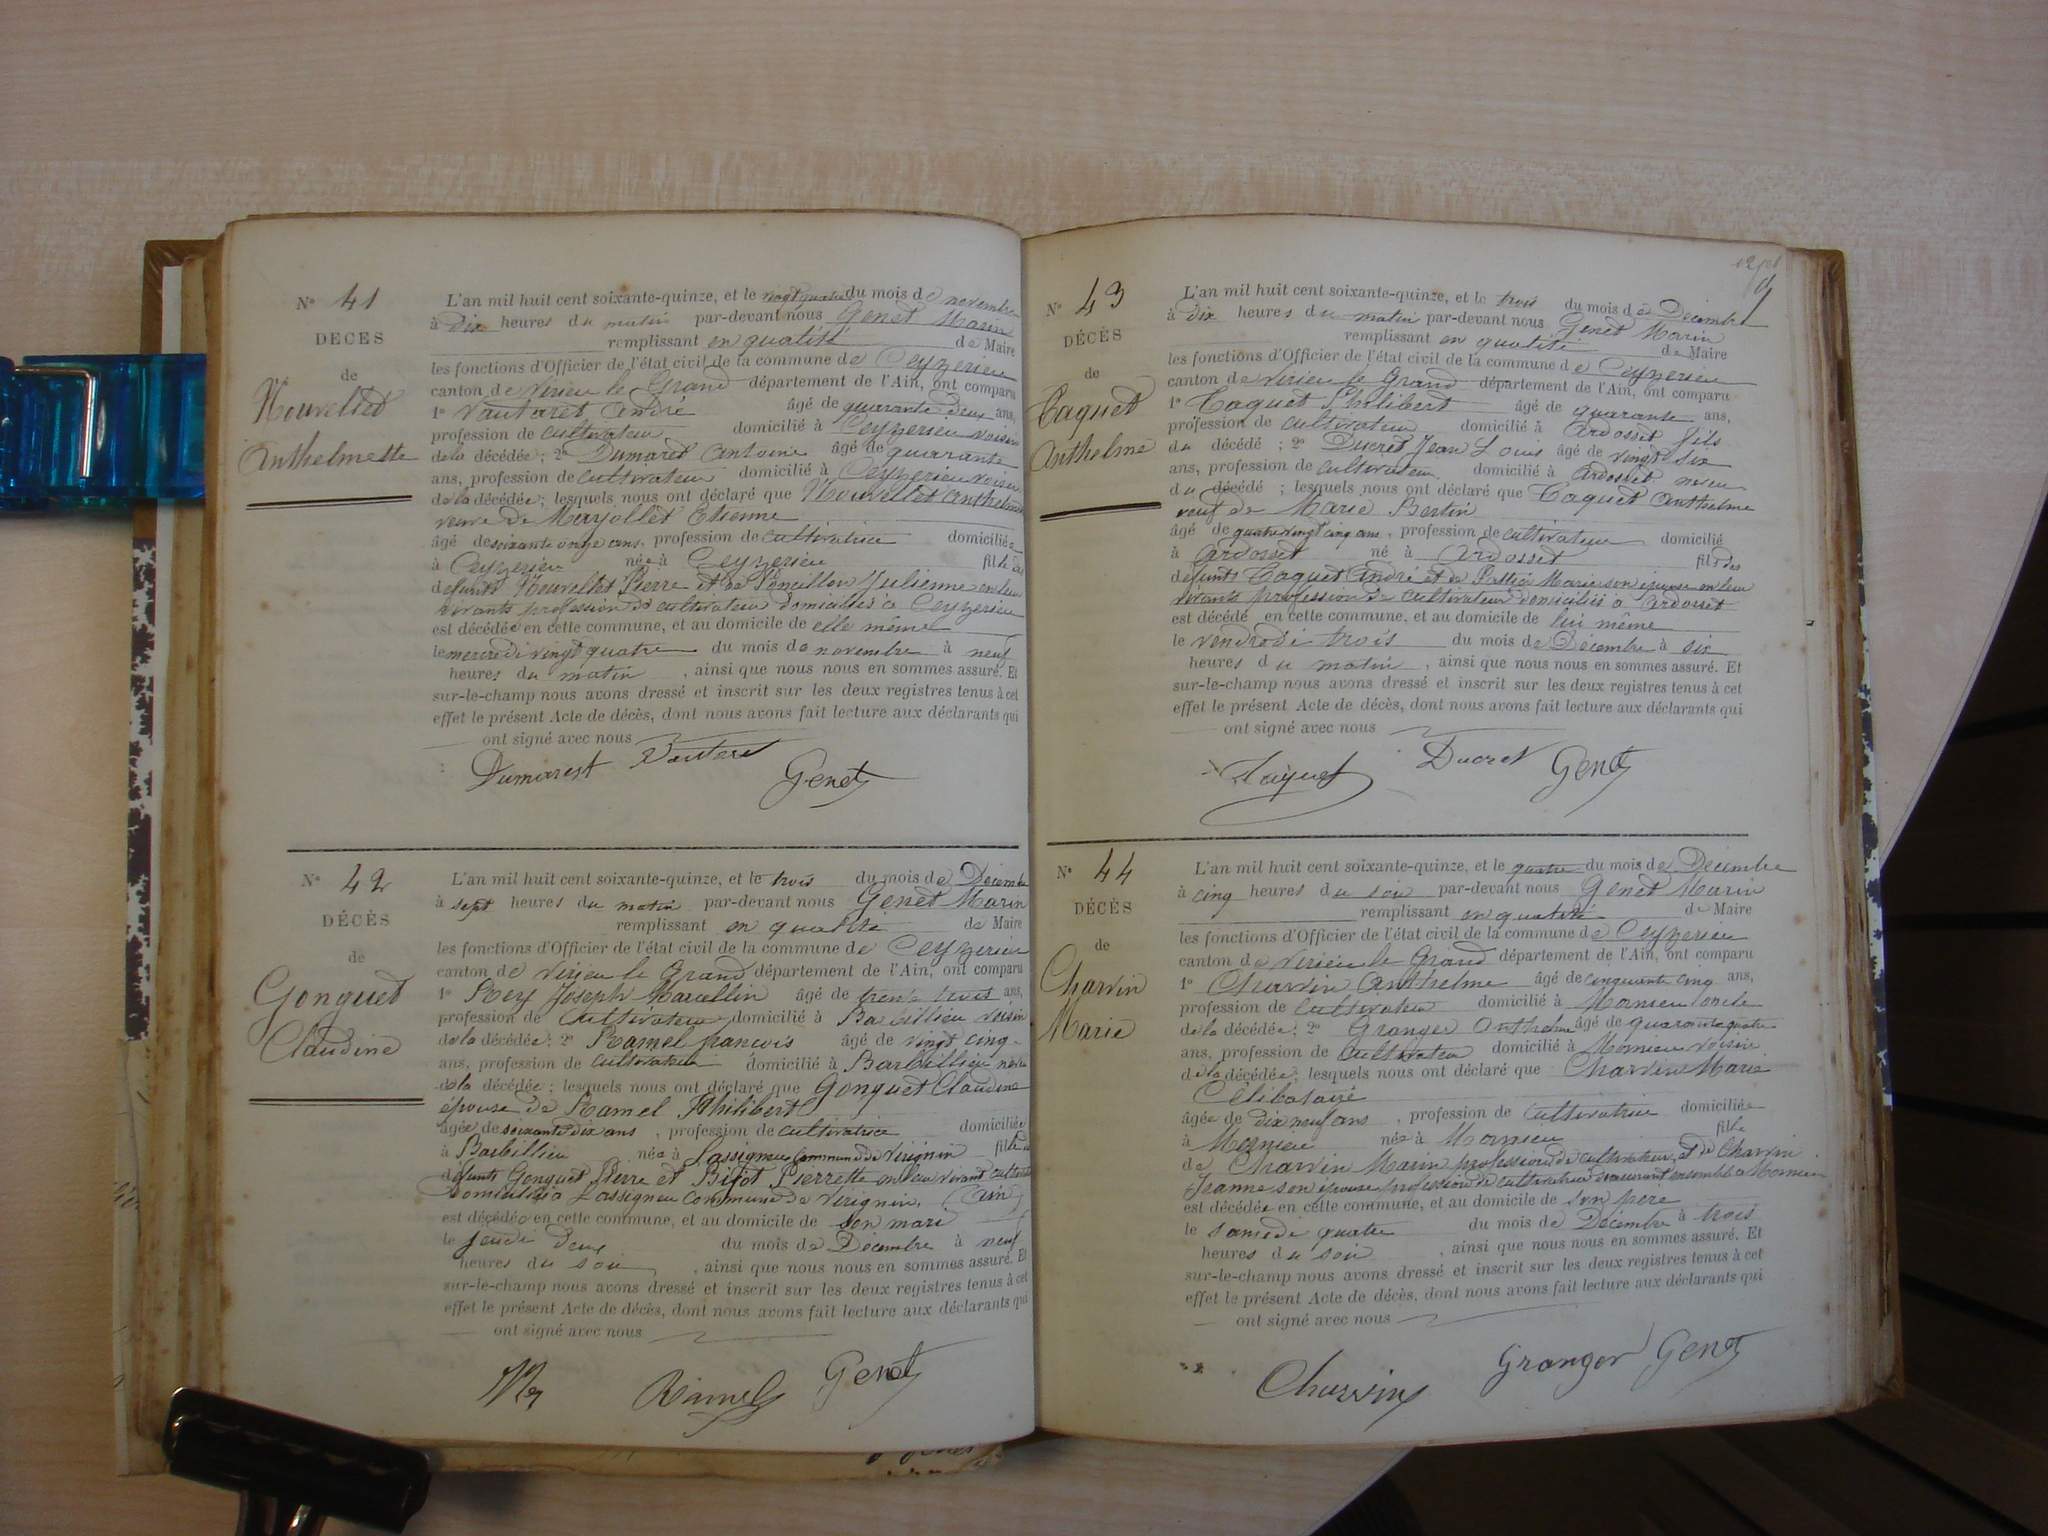 N° 41
DÉCÈS
de
Nouvellet
Anthelmette
L'an mil huit cent soixante-quinze, et le vingt quatre du mois de novembre
à dix heures du matin par-devant nous Genet Marin
remplissant en qualité de Maire
les fonctions d'Officier de l'état civil de la commune de Ceyzerieu
canton de Virieu le Grand département de l'Ain, ont comparu
1° Vautaret André âgé de quarante deux ans,
profession de cultivateur domicilié à Ceyzerieu voisin
de la décédée; 2° Dumaret Antoine âgé de quarante
ans, profession de cultivateur domicilié à Ceyzerieu voisin
de la décédée; lesquels nous ont déclaré que Nouvellet Anthelmette
veuve de Mayollet Etienne
âgée de soixante onze ans, profession de cultivatrice domiciliée
à Ceyzerieu née à Ceyzerieu fille des
défunts Nouvellet Pierre et de Poncillon Julienne en leur
vivants profession de cultivateur domiciliés à Ceyzerieu
est décédée en cette commune, et au domicile de elle même
le mercredi vingt quatre du mois de novembre à neuf
heures du matin, ainsi que nous nous en sommes assuré. Et
sur-le-champ nous avons dressé et inscrit sur les deux registres tenus à cet
effet le présent Acte de décès, dont nous avons fait lecture aux déclarants qui
ont signé avec nous
Dumarest Genet
N° 42
DÉCÈS
de
Gonguet
Claudine
L'an mil huit cent soixante-quinze, et le trois du mois de Décembre
à sept heures du matin par-devant nous Genet Marin
remplissant en qualité de Maire
les fonctions d'Officier de l'état civil de la commune de Ceyzerieu
canton de Virieu le Grand département de l'Ain, ont comparu
1° Rey Joseph Marcellin âgé de trente trois ans,
profession de Cultivateur domicilié à Barbillieu voisin
de la décédée; 2° Ramel françois âgé de vingt cinq
ans, profession de cultivateur domicilié à Barbillieu neveu
de la décédée; lesquels nous ont déclaré que Gonguet Claudine
épouse de Ramel Philibert
âgée de soixante dix ans, profession de cultivatrice domiciliée
à Barbillieu née à Lassigneu Commune de Virignin fille des
défunts Gonguet Pierre et Bijot Pierrette en leur vivant cultivateurs
domiciliés à Lassigneu commune de Virignin, (Ain)
est décédée en cette commune, et au domicile de son mari
le Jeudi deux du mois de Décembre à neuf
heures du soir, ainsi que nous nous en sommes assuré. Et
sur-le-champ nous avons dressé et inscrit sur les deux registres tenus à cet
effet le présent Acte de décès, dont nous avons fait lecture aux déclarants qui
ont signé avec nous
Rey Ramel Genet
N° 43
DÉCÈS
de
Taquet
Anthelme
L'an mil huit cent soixante-quinze, et le trois du mois de Décembre
à dix heures du matin par-devant nous Genet Marin
remplissant en qualité de Maire
les fonctions d'Officier de l'état civil de la commune de Ceyzerieu
canton de Virieu le Grand département de l'Ain, ont comparu
1° Taquet Philibert âgé de quarante ans,
profession de cultivateur domicilié à Ardosset fils
du décédé; 2° Ducret Jean Louis âgé de vingt six
ans, profession de cultivateur domicilié à Ardosset neveu
du décédé; lesquels nous ont déclaré que Taquet Anthelme
veuf de Marie Bertin
âgé de quatre vingt cinq ans, profession de cultivateur domicilié
à Ardosset né à Ardosset fils des
défunts Taquet André et de Marie son épouse en leur
vivants profession de cultivateur domiciliés à Ardosset
est décédé en cette commune, et au domicile de lui même
le vendredi trois du mois de Décembre à six
heures du matin, ainsi que nous nous en sommes assuré. Et
sur-le-champ nous avons dressé et inscrit sur les deux registres tenus à cet
effet le présent Acte de décès, dont nous avons fait lecture aux déclarants qui
ont signé avec nous
Taquet Ducret Genet
N° 44
DÉCÈS
de
Charvin
Marie
L'an mil huit cent soixante-quinze, et le quatre du mois de Décembre
à cinq heures du soir par-devant nous Genet Marin
remplissant en qualité de Maire
les fonctions d'Officier de l'état civil de la commune de Ceyzerieu
canton de Virieu le Grand département de l'Ain, ont comparu
1° Charvin Anthelme âgé de cinquante cinq ans,
profession de cultivateur domicilié à Mornieu oncle
de la décédée; 2° Granger Anthelme âgé de quarante quatre
ans, profession de cultivateur domicilié à Mornieu voisin
de la décédée; lesquels nous ont déclaré que Charvin Marie
Célibataire
âgée de dix neuf ans, profession de cultivatrice domiciliée
à Mornieu née à Mornieu fille
de Charvin Marin profession de cultivateur et de Charvin
Jeanne son épouse profession de cultivateur demeurant ensemble à Mornieu
est décédée en cette commune, et au domicile de son père
le samedi quatre du mois de Décembre à trois
heures du soir, ainsi que nous nous en sommes assuré. Et
sur-le-champ nous avons dressé et inscrit sur les deux registres tenus à cet
effet le présent Acte de décès, dont nous avons fait lecture aux déclarants qui
ont signé avec nous
Charvin Granger Genet